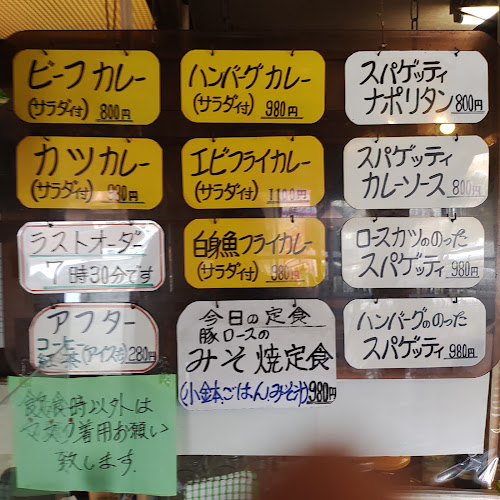 ビーフカレー
(サラダ付) 800円
ハンバーグカレー
(サラダ付) 980円
スパゲッティ
ナポリタン 800円
カツカレー
(サラダ付) 980円
エビフライカレー
(サラダ付) 1100円
スパゲッティ
カレーソース 800円
ラストオーダー
7時30分です
白身魚フライカレー
(サラダ付) 980円
ロースカツののった
スパゲッティ 980円
アフター
コーヒー
紅茶(アイス共) 280円
今日の定食
豚ロースの
みそ焼定食
(小鉢.ごはん.みそ汁) 980円
ハンバーグののった
スパゲッティ 980円
飲食時以外は
マスク着用お願い
致します.